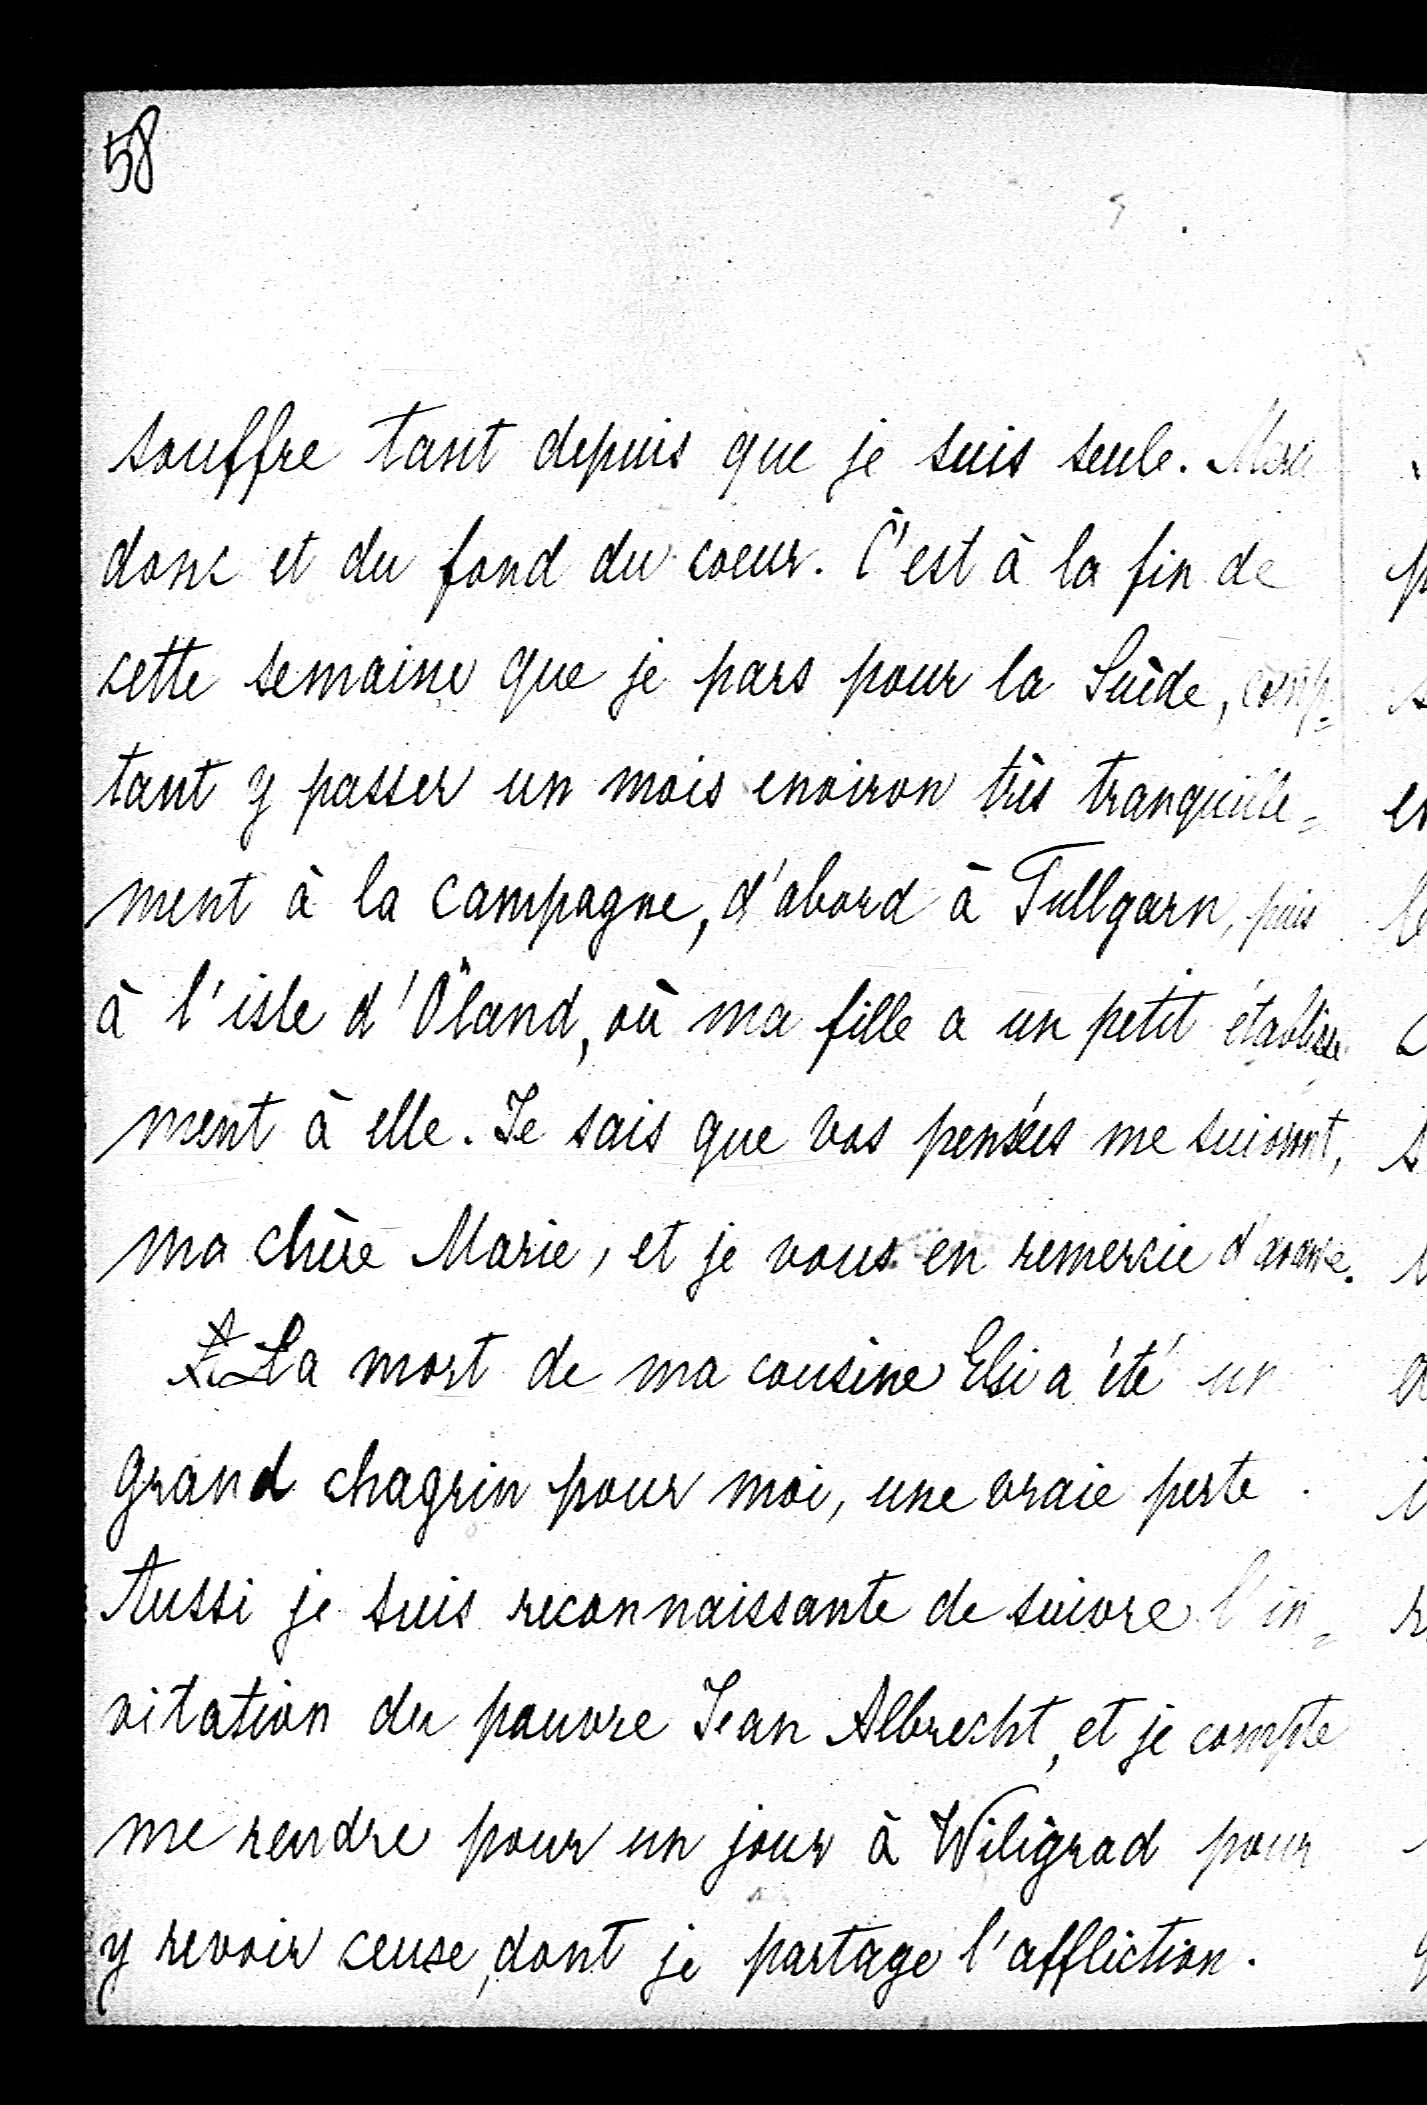 58
souffre tant depuis que je suis seule. Merci
donc et du fond du coeur. C'est à la fin de
cette semaine que je pars pour la Suède, comp=
tant y passer un mois environ très tranquille=
ment à la campagne, d'abord à Tullgarn, puis
à l'isle d'Öland, où ma fille a un petit établisse
ment à elle. Je sais que vos pensées me suivront,
ma chère Marie, et je vous en remercie d'avance.
La mort de ma cousine Elsi a été un
grand chagrin pour moi, une vraie perte.
Aussi je suis reconnaissante de suivre l'in=
vitation du pauvre Jean Albrecht, et je compte
me rendre pour un jour à Wiligrad pour
y revoir ceuse, dont je partage l'affliction.